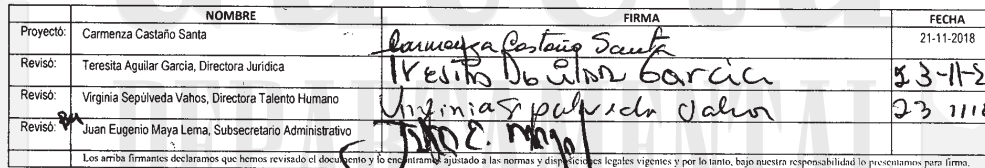 NOMBRE FIRMA FECHA
Proyectó: Carmenza Castaño Santa Carmenza Castaño Santa 21-11-2018
Revisó: Teresita Aguilar Garcia, Directora Jurídica Teresita Aguilar Garcia 23-11-2
Revisó: Virginia Sepúlveda Vahos, Directora Talento Humano Virginia Sepulveda Vahos 23 11/18
Revisó: Juan Eugenio Maya Lema, Subsecretario Administrativo
Los arriba firmantes declaramos que hemos revisado el documento y lo encontramos ajustado a las normas y disposiciones legales vigentes y por lo tanto, bajo nuestra responsabilidad lo presentamos para firma.